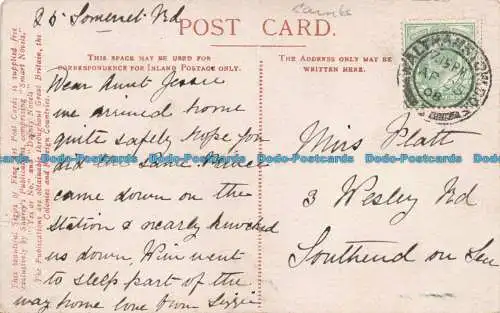 25 Somerset Rd
POST CARD.
THIS SPACE MAY BE USED FOR
CORRESPONDENCE FOR INLAND POSTAGE ONLY.
THE ADDRESS ONLY MAY BE
WRITTEN HERE.
Dear Aunt Jessie
we arrived home
quite safely hope you
did the same
came down on the
station & nearly knocked
us down, Wm went
to sleep part of the
way home love from Lizzie
Miss Platt
3 Wesley Rd
Southend on Sea
This beautiful Series of Fine Art Post Cards is supplied free
exclusively by Shurey's Publications, comprising "Smart Novels,"
"Yes or No," and "Dainty Novels."
The Publications are obtainable throughout Great Britain, the
Colonies and Foreign Countries.
Dodo-Postcards.com Dodo-Postcards.com Dodo-Postcards.com Dodo-Postcards.com